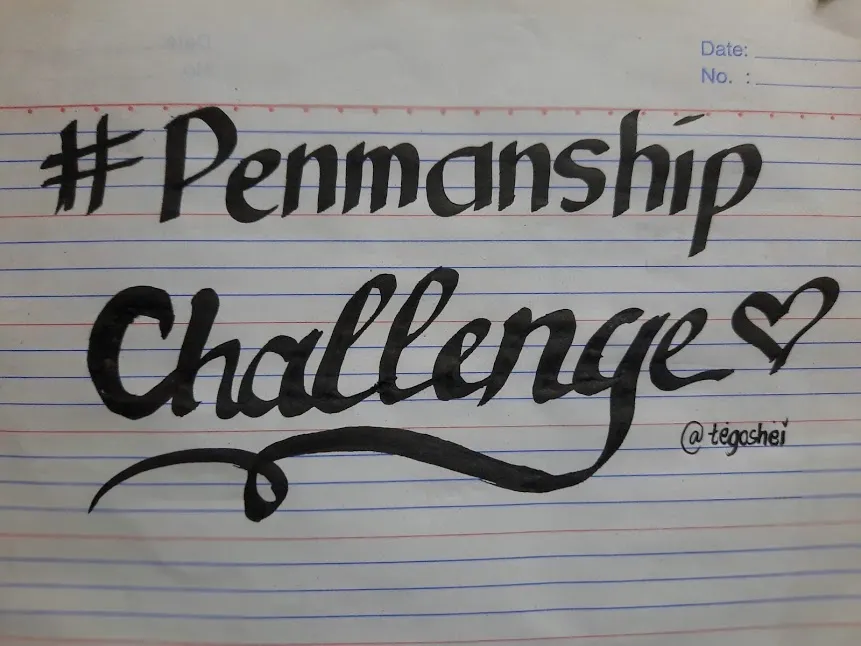 Date:
No. :
#Penmanship
Challenge♡
@tegoshei